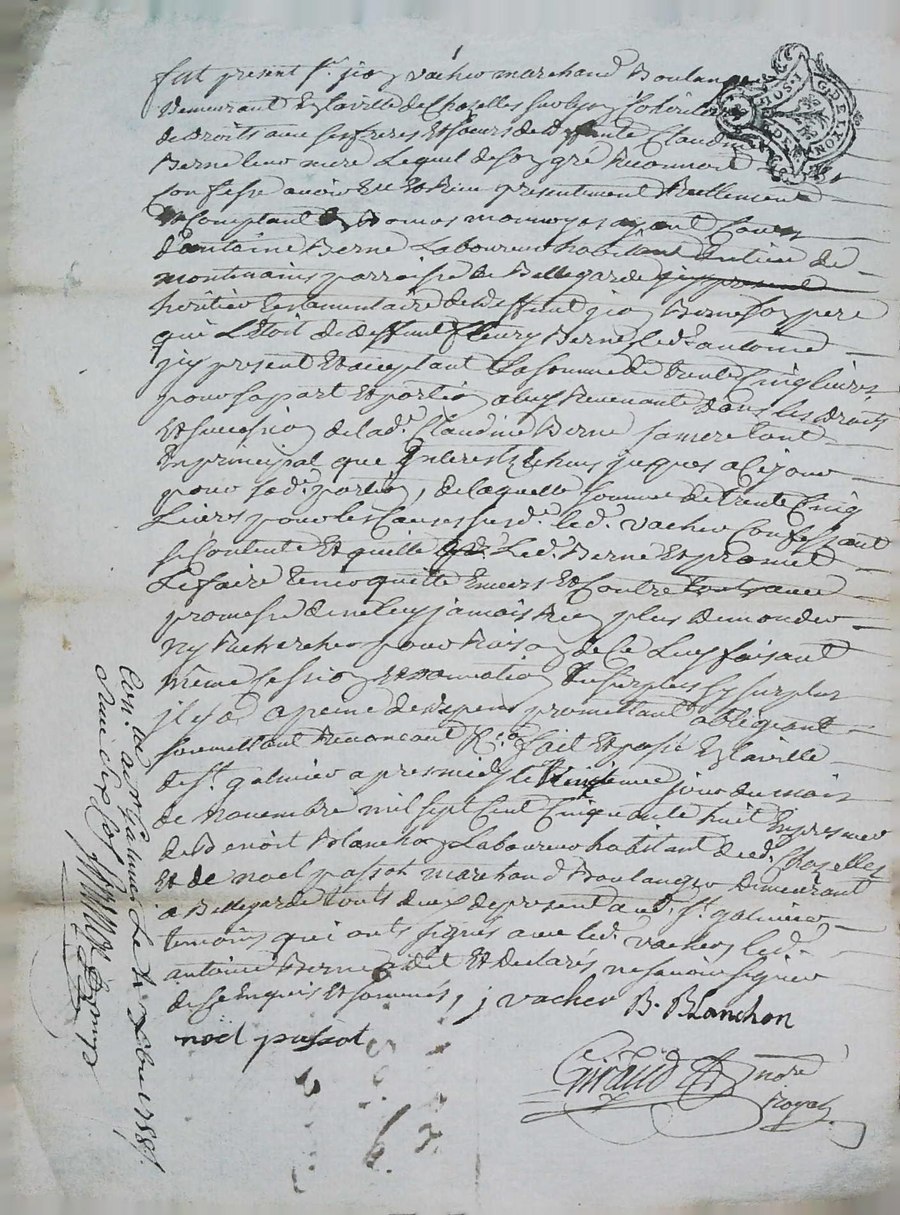 fut present sr jean vacher marchand Boulanger
demeurant en la ville de Chazelles sur lyon Coheritier
de droits avec ses freres et sœurs de deffunte Claudine
Berne leur mere Lequel de son gré Reconnoit
Confesse avoir Eu et Reçu presentement Reellement
et Comptant en bonnes monnoyes ayant Cours
d'antoine Berne Laboureur habitant du lieu de
montenains parroisse de Bellegarde
heritier testamentaire de deffunt jean Berne son pere
qui L'etoit de deffunt fleury Berne led. antoine
jcy present et acceptant La somme de trente Cinq livres
pour sa part et portion a luy Revenante dans les droits
et succession de lad. Claudine Berne sa mere tant
En principal que Interests Echus jusques a ce jour
pour sad. portion, de laquelle somme de trente Cinq
Livres pour les Causes susd. led. vacher Confessant
se Contente et quitte led. Berne et promet
Le faire tenir quitte Envers et Contre touts avec
promesse de ne luy jamais Rien plus demander
ny Rechercher pour Raison de Ce Luy faisant
même cession du surplus sy surplus
il y a a peine de depens promettant obligeant
soumettant Renonçant &ca fait et passé En la ville
de St. galmier apres midy le vingtieme jour du mois
de novembre mil sept Cent Cinquante huit En presence
de Benoit Blanchon Laboureur habitant dud. Chazelles
Et de noel passot marchand Boulanger demeurant
a Bellegarde touts deux de present aud. St. galmier
temoins qui ont signés avec led. vacher led.
antoine Berne a dit et declaré ne savoir signer
de ce Enquis et sommés, j vacher B. Blanchon
noël passot
Giraud nore
Royal
Con.lé a St Galmier Le 1r Xbre 1758
G. DE LYON
1. SOL